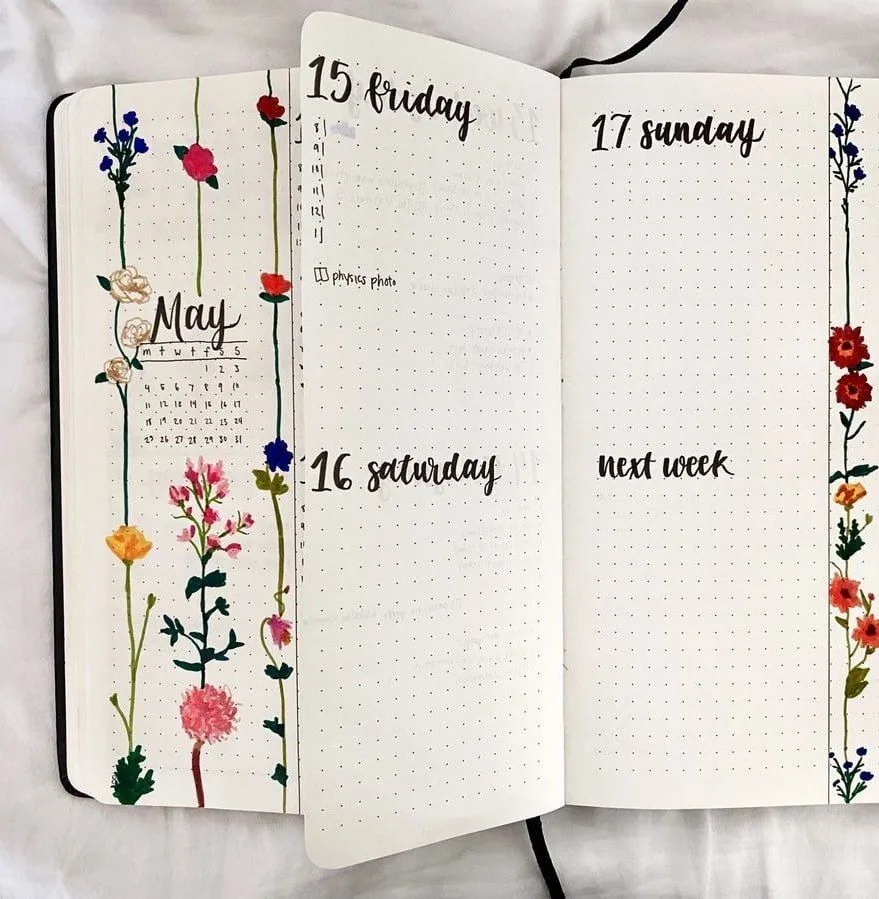 May
m t w t f s s
1 2 3
4 5 6 7 8 9 10
11 12 13 14 15 16 17
18 19 20 21 22 23 24
25 26 27 28 29 30 31
15 friday
8
9
10
11
12
1
physics photo
16 saturday
17 sunday
next week